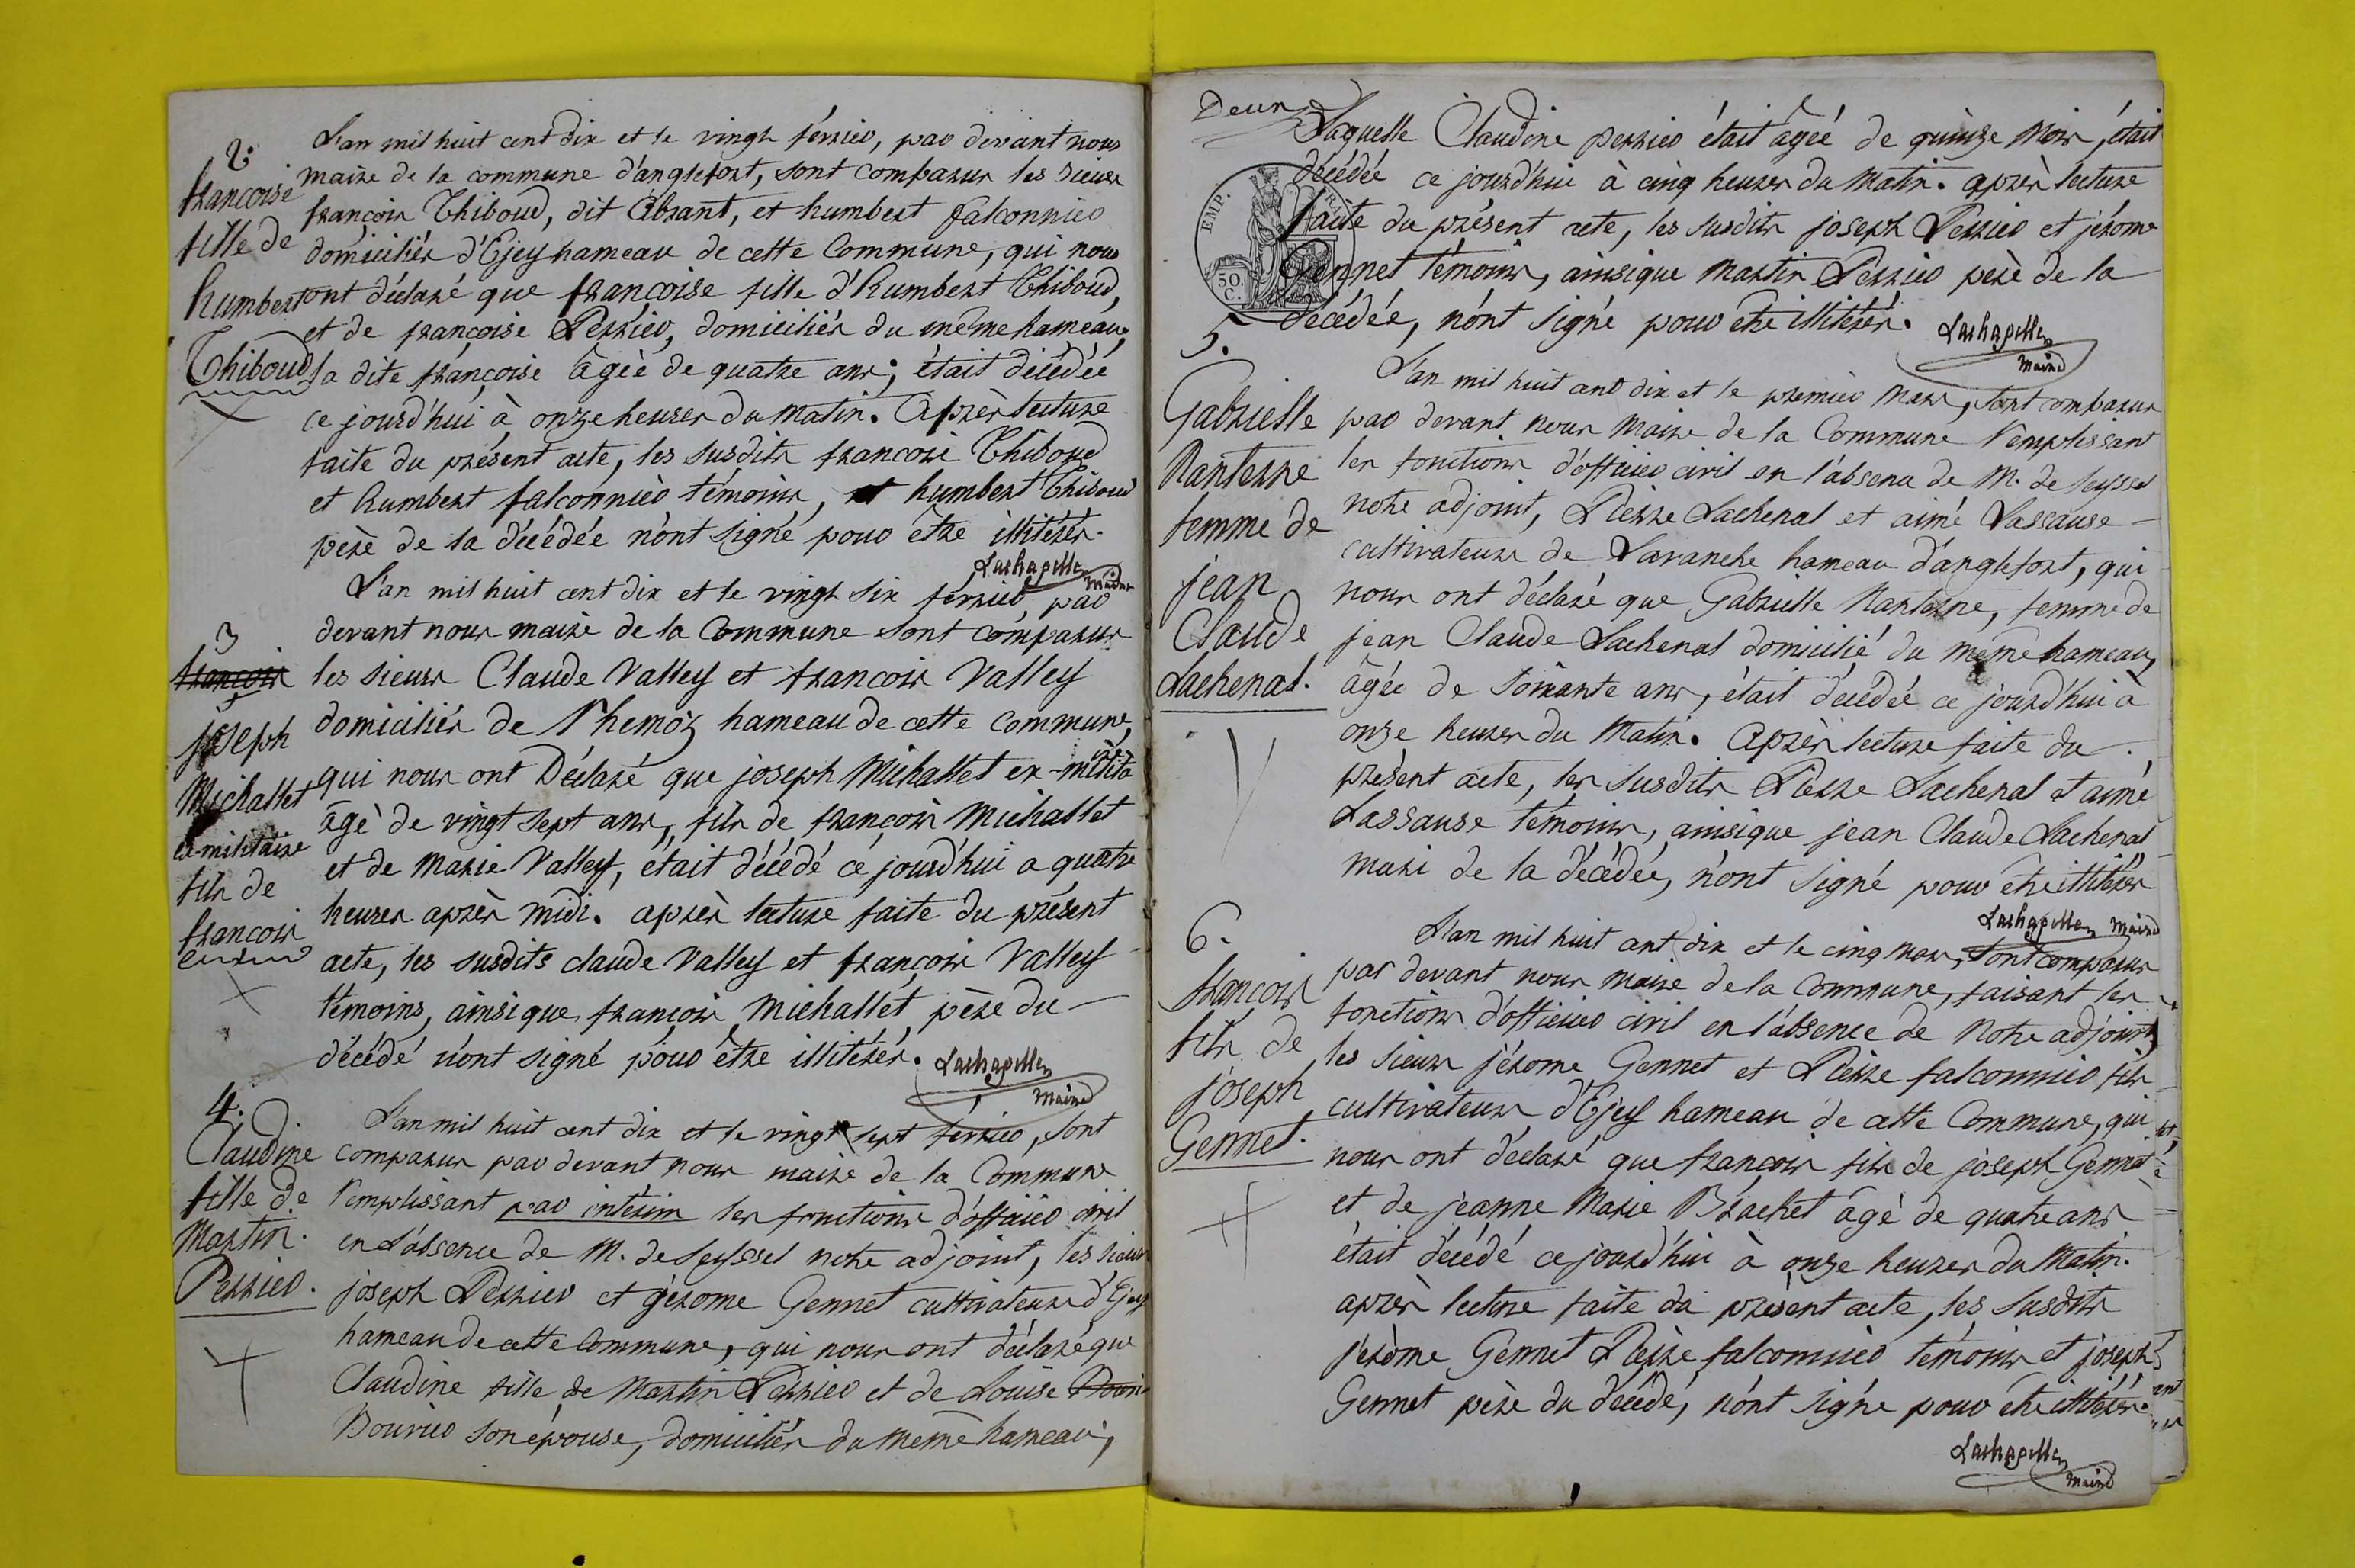 2.
françoise
fille de
humbert
Thiboud
L'an mil huit cent dix et le vingt février, par devant nous
maire de la commune d'anglefort, sont comparus les sieurs
françois Thiboud, dit Abrant, et humbert falconnier
domiciliés d'Ejey hameau de cette Commune, qui nous
ont déclaré que françoise fille d'humbert Thiboud,
et de françoise Perrier, domiciliés du même hameau,
la dite françoise âgée de quatre ans, était décédée
ce jourd'hui à onze heures du matin. Après lecture
faite du présent acte, les susdits françois Thiboud
et humbert falconnier témoins, et humbert Thiboud
père de la décédée n'ont signé pour être illitérés.
Lachapelle
Maire
3
françois
joseph
Michallet
ex-militaire
fils de
françois
L'an mil huit cent dix et le vingt six février, par
devant nous maire de la Commune sont comparus
les sieurs Claude Valley et françois Valley
domiciliés de Rhemoz hameau de cette commune,
qui nous ont Déclaré que joseph Michallet ex-militaire
âgé de vingt sept ans, fils de françois Michallet
et de Marie Valley, était décédé ce jourd'hui a quatre
heures après midi. après lecture faite du présent
acte, les susdits claude Valley et françois Valley
témoins, ainsique françois Michallet, père du
décédé n'ont signé pour être illitérés.
Lachapelle
Maire
4.
Claudine
fille de
Martin
Perrier.
L'an mil huit cent dix et le vingt sept février, sont
comparus par devant nous maire de la Commune
remplissant par intérim les fonctions d'officier civil
en l'absence de M. de Seyssel notre adjoint, les sieurs
joseph Perrier et gérome Gennet cultivateurs d'Ejey
hameau de cette Commune, qui nous ont déclaré que
Claudine fille de Martin Perrier et de Louise
Bouvier son épouse, domiciliés du même hameau,
Deux
Laquelle Claudine perrier était âgée de quinze Mois, était
décédée ce jourd'hui à cinq heures du Matin. après lecture
faite du présent acte, les susdits joseph Perrier et jérome
Gennet témoins, ainsique Martin Perrier père de la
décédée, n'ont signé pour être illitérés.
EMP.
30
C.
Lachapelle
Maire
5.
Gabrielle
Nanterne
femme de
jean
Claude
Lachenal.
L'an mil huit cent dix et le premier Mars, sont comparus
par devant nous Maire de la Commune remplissant
les fonctions d'officier civil en l'absence de M. de Seyssel
notre adjoint, Pierre Lachenal et aimé Lassause
cultivateurs de Lavanche hameau d'anglefort, qui
nous ont déclaré que Gabrielle Nanterne, femme de
jean Claude Lachenal domicilié du même hameau,
âgée de soixante ans, était décédée ce jourd'hui à
onze heures du Matin. Après lecture faite du
présent acte, les susdits Pierre Lachenal et aimé
Lassause témoins, ainsique jean Claude Lachenal
mari de la décédée, n'ont signé pour être illitérés
Lachapelle Maire
6.
françois
fils de
joseph
Gennet.
L'an mil huit cent dix et le cinq mars, sont comparus
par devant nous maire de la Commune, faisant les
fonctions d'officier civil en l'absence de Notre adjoint,
les sieurs jérome Gennet et Pierre falconnier fils
cultivateurs d'Ejey hameau de cette Commune, qui
nous ont déclaré que françois fils de joseph Gennet
et de jeanne Marie Brachet âgé de quatre ans
était décédé ce jourd'hui à onze heures du Matin.
après lecture faite du présent acte, les susdits
jérôme Gennet Pierre falconnier témoins et joseph
Gennet père du décédé, n'ont signé pour être illitérés.
Lachapelle
Maire